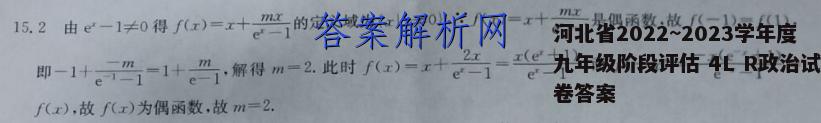 15.2 由 eˣ-1≠0 得 f(x)=x+mx/(eˣ-1)的定 域 =x+mx 是偶函数,故 f(-1)=f(1),
即-1+(-m)/(e⁻¹-1)=1+m/(e-1),解得 m=2.此时 f(x)=x+2x/(eˣ-1)=x(eˣ+1)
f(x),故 f(x)为偶函数,故 m=2.
答案解析网
河北省2022~2023学年度
九年级阶段评估 4L R政治试
卷答案